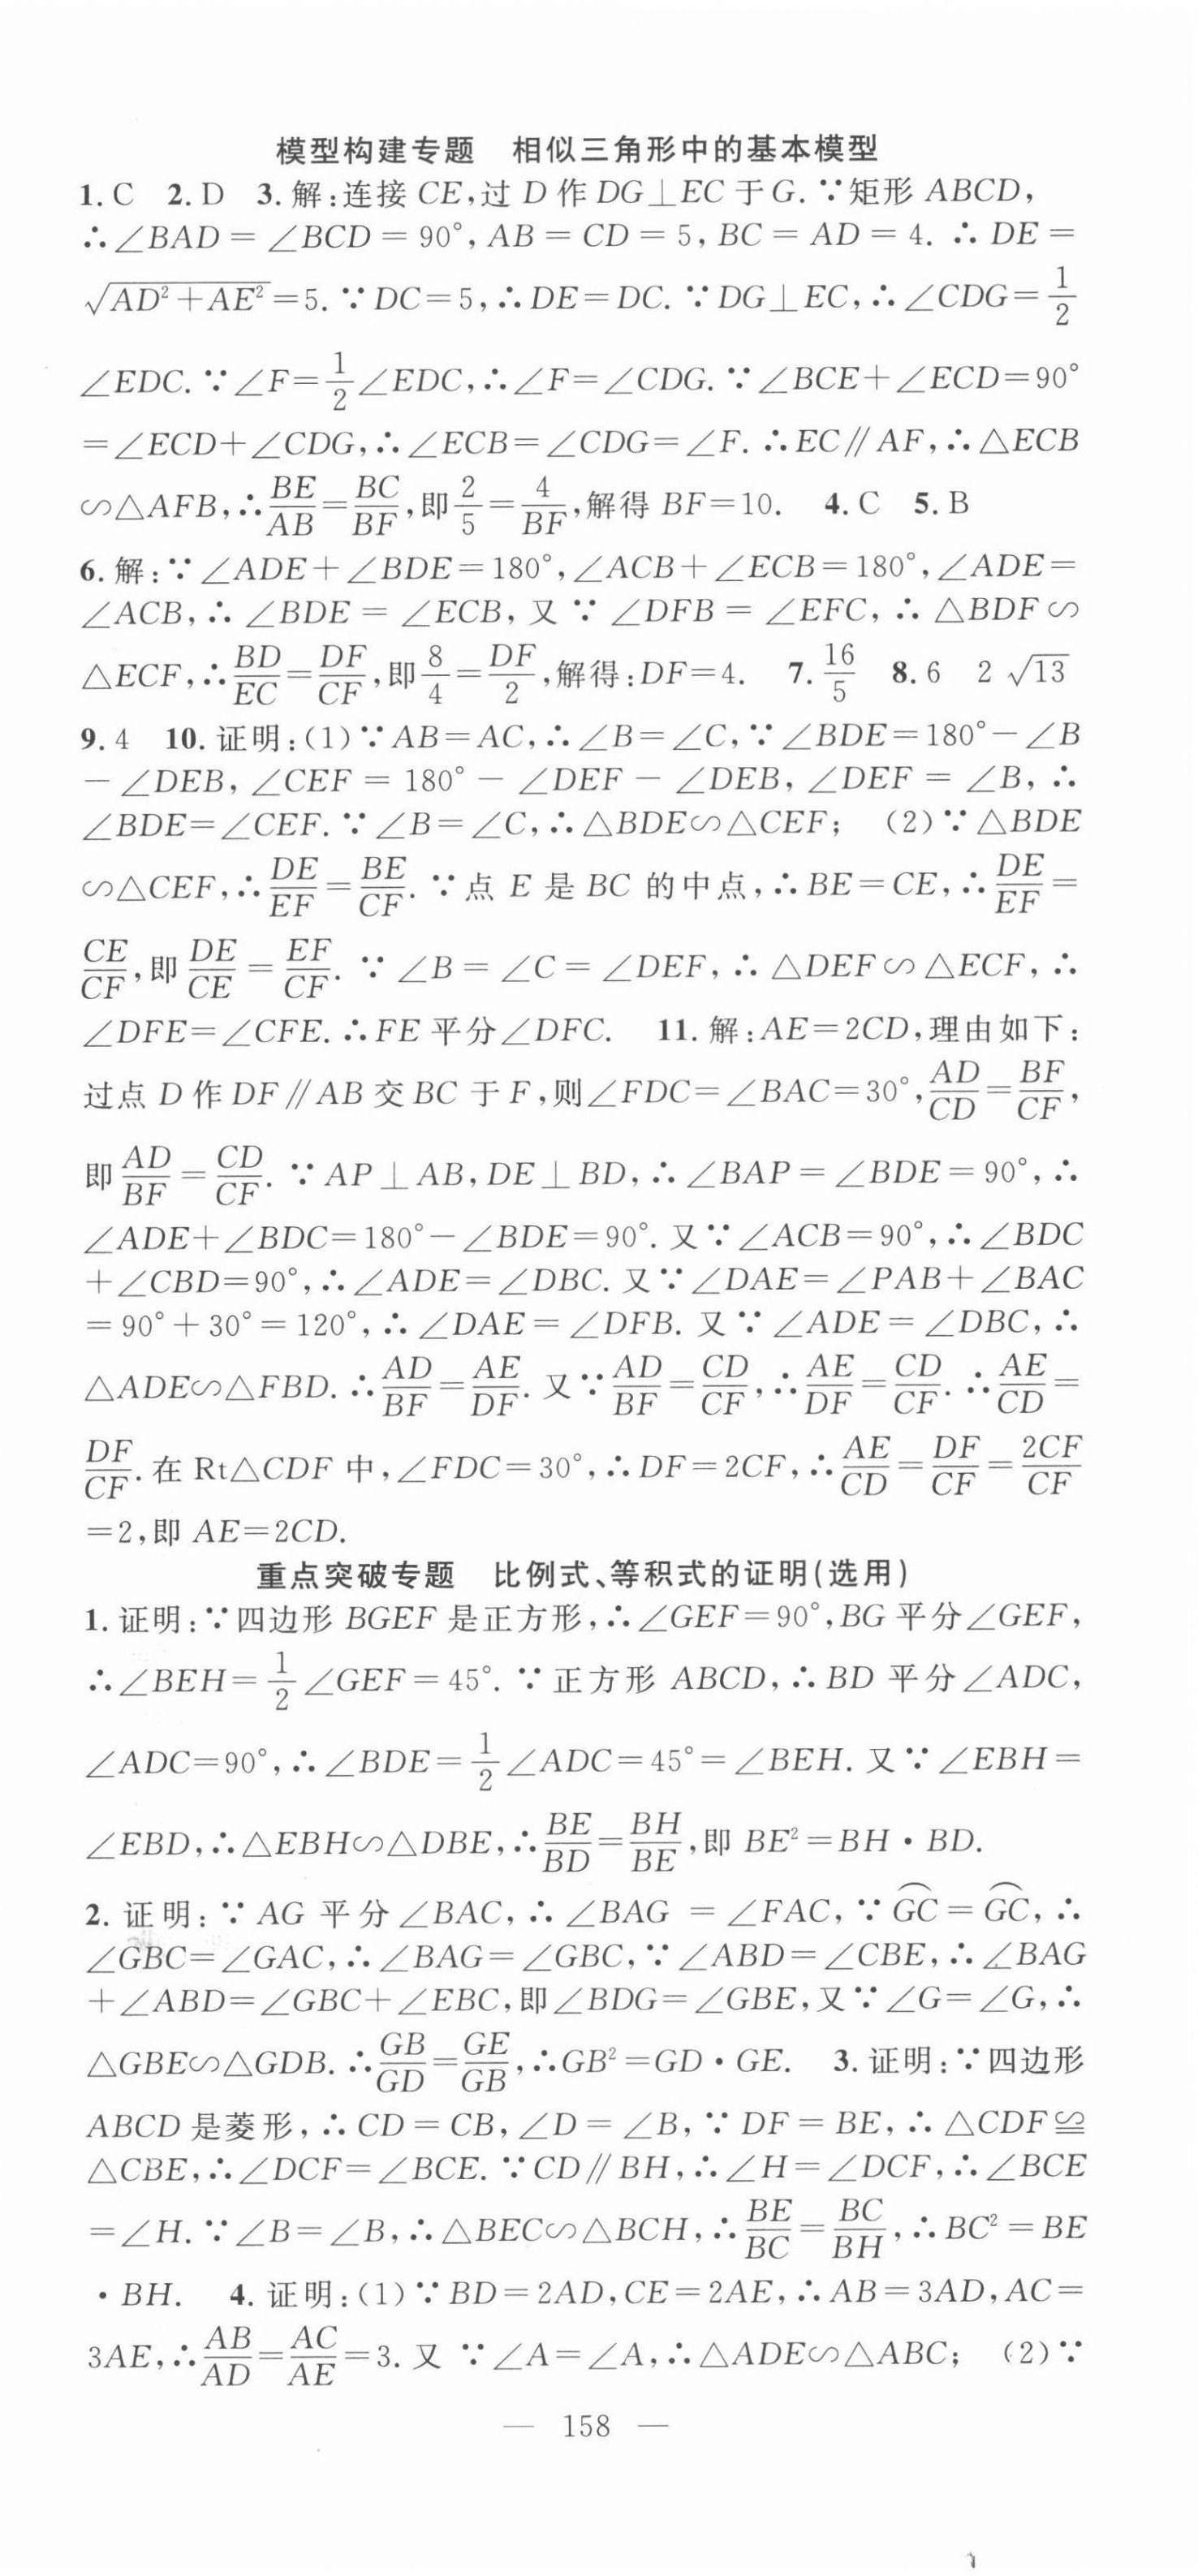 模型构建专题　相似三角形中的基本模型
1. C　2. D　3. 解:连接 CE,过 D 作 DG⊥EC 于 G. ∵矩形 ABCD,
∴∠BAD = ∠BCD = 90°, AB = CD = 5, BC = AD = 4. ∴ DE =
√(AD²+AE²)=5. ∵DC=5,∴DE=DC. ∵DG⊥EC,∴∠CDG=1/2
∠EDC. ∵∠F=1/2∠EDC,∴∠F=∠CDG. ∵∠BCE+∠ECD=90°
=∠ECD+∠CDG,∴∠ECB=∠CDG=∠F. ∴EC∥AF,∴△ECB
∽△AFB,∴BE/AB=BC/BF,即2/5=4/BF,解得 BF=10.　4. C　5. B
6. 解:∵∠ADE+∠BDE=180°,∠ACB+∠ECB=180°,∠ADE=
∠ACB,∴∠BDE = ∠ECB, 又 ∵ ∠DFB = ∠EFC, ∴ △BDF∽
△ECF,∴BD/EC=DF/CF,即8/4=DF/2,解得:DF=4.　7. 16/5　8. 6　2√13
9. 4　10. 证明:(1)∵AB=AC,∴∠B=∠C,∵∠BDE=180°-∠B
-∠DEB, ∠CEF = 180° - ∠DEF - ∠DEB, ∠DEF = ∠B, ∴
∠BDE=∠CEF. ∵∠B=∠C,∴△BDE∽△CEF;　(2)∵△BDE
∽△CEF,∴DE/EF=BE/CF. ∵点 E 是 BC 的中点,∴BE=CE,∴DE/EF=
CE/CF,即DE/CE=EF/CF. ∵∠B=∠C=∠DEF,∴△DEF∽△ECF,∴
∠DFE=∠CFE. ∴FE 平分∠DFC.　11. 解:AE=2CD,理由如下:
过点 D 作 DF∥AB 交 BC 于 F,则∠FDC=∠BAC=30°,AD/CD=BF/CF,
即AD/BF=CD/CF. ∵AP⊥AB,DE⊥BD,∴∠BAP=∠BDE=90°,∴
∠ADE+∠BDC=180°-∠BDE=90°. 又∵∠ACB=90°,∴∠BDC
+∠CBD=90°,∴∠ADE=∠DBC. 又∵∠DAE=∠PAB+∠BAC
=90°+30°=120°,∴∠DAE=∠DFB. 又∵∠ADE=∠DBC,∴
△ADE∽△FBD. ∴AD/BF=AE/DF. 又∵AD/BF=CD/CF,∴AE/DF=CD/CF. ∴AE/CD=
DF/CF. 在 Rt△CDF 中,∠FDC=30°,∴DF=2CF,∴AE/CD=DF/CF=2CF/CF
=2,即 AE=2CD.
重点突破专题　比例式、等积式的证明(选用)
1. 证明:∵四边形 BGEF 是正方形,∴∠GEF=90°,BG 平分∠GEF,
∴∠BEH=1/2∠GEF=45°. ∵正方形 ABCD,∴BD 平分∠ADC,
∠ADC=90°,∴∠BDE=1/2∠ADC=45°=∠BEH. 又∵∠EBH=
∠EBD,∴△EBH∽△DBE,∴BE/BD=BH/BE,即 BE²=BH·BD.
2. 证明:∵AG 平分∠BAC,∴∠BAG = ∠FAC,∵⌒GC=⌒GC,∴
∠GBC=∠GAC,∴∠BAG=∠GBC,∵∠ABD=∠CBE,∴∠BAG
+∠ABD=∠GBC+∠EBC,即∠BDG=∠GBE,又∵∠G=∠G,∴
△GBE∽△GDB. ∴GB/GD=GE/GB,∴GB²=GD·GE.　3. 证明:∵四边形
ABCD 是菱形,∴CD=CB,∠D=∠B,∵DF=BE,∴△CDF≌
△CBE,∴∠DCF=∠BCE. ∵CD∥BH,∴∠H=∠DCF,∴∠BCE
=∠H. ∵∠B=∠B,∴△BEC∽△BCH,∴BE/BC=BC/BH,∴BC²=BE
·BH.　4. 证明:(1)∵BD=2AD,CE=2AE,∴AB=3AD,AC=
3AE,∴AB/AD=AC/AE=3. 又 ∵∠A=∠A,∴△ADE∽△ABC;　(2)∵
— 158 —